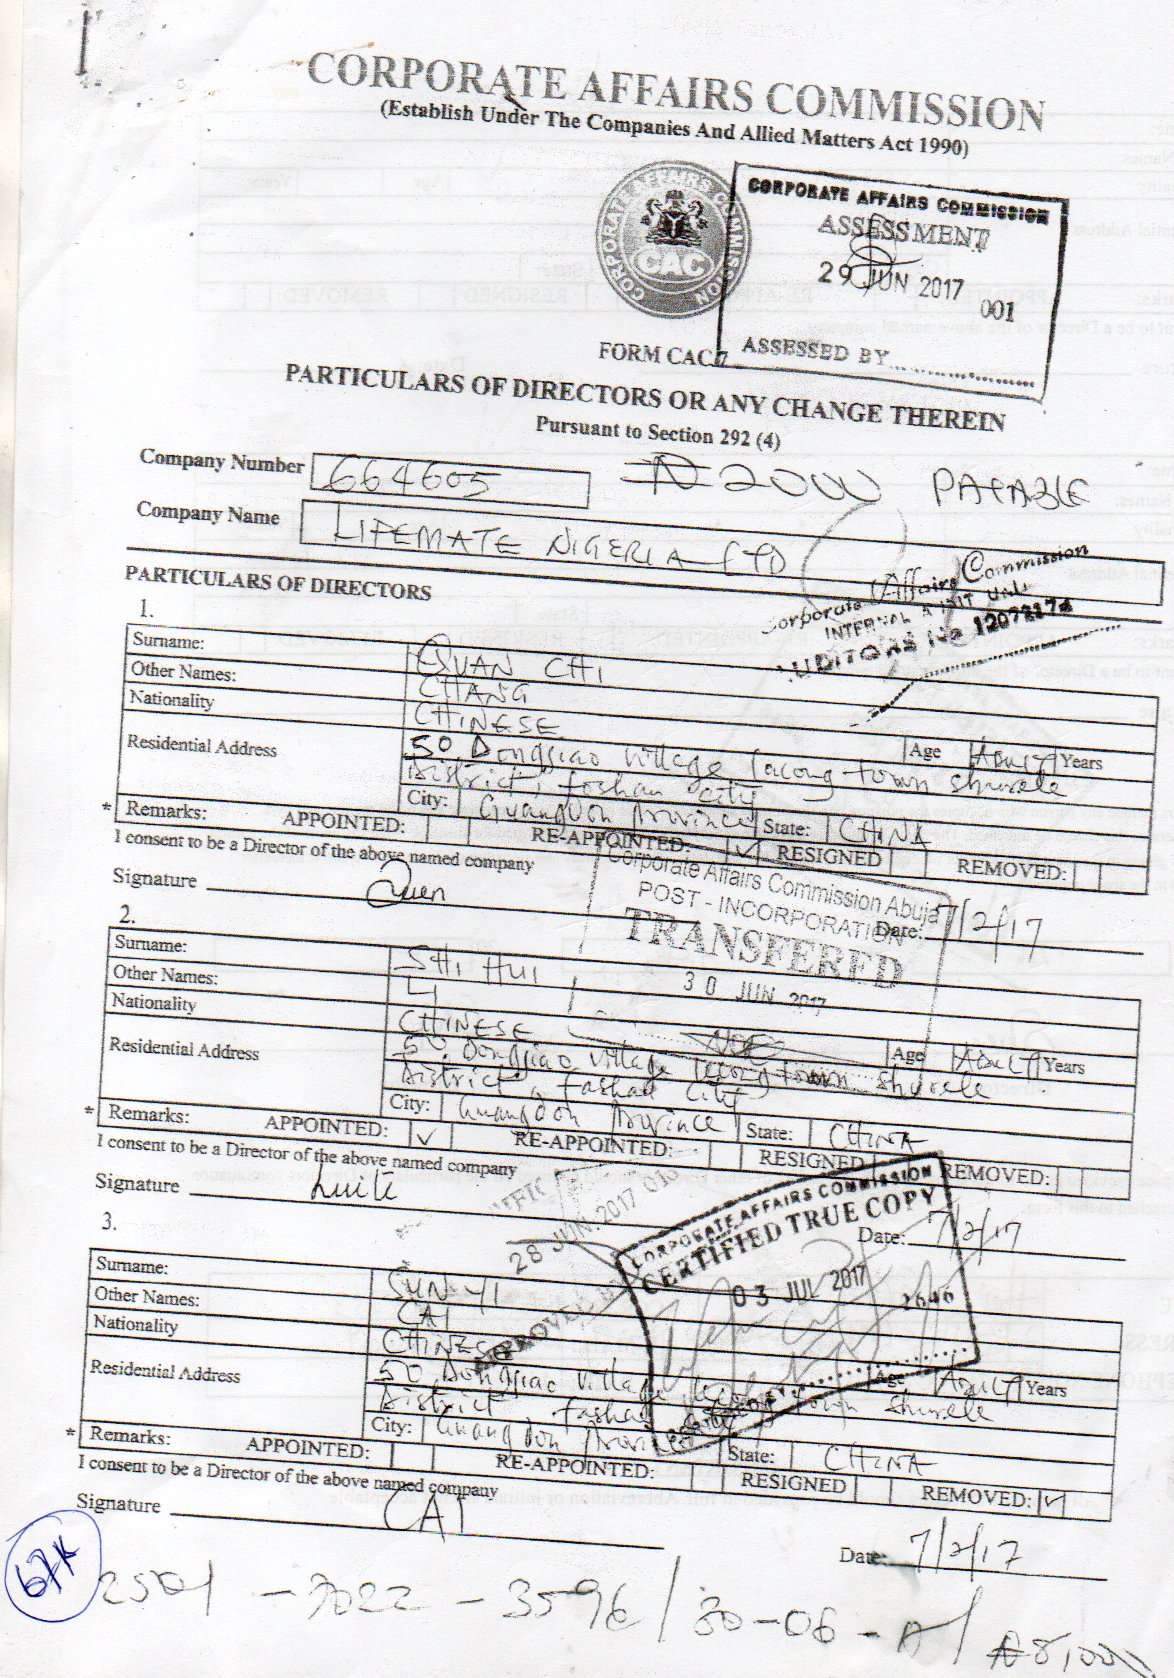 CORPORATE AFFAIRS COMMISSION
(Establish Under The Companies And Allied Matters Act 1990)
CORPORATE AFFAIRS COMMISSION
CAC
CORPORATE AFFAIRS COMMISSION
ASSESSMENT
29 JUN 2017
001
ASSESSED BY
FORM CAC 7
PARTICULARS OF DIRECTORS OR ANY CHANGE THEREIN
Pursuant to Section 292 (4)
Company Number 664605
PAYABLE
Company Name LIFEMATE NIGERIA LTD
Corporate Affairs Commission
INTERNAL AUDIT UNIT
AUDITORS No 1207217
PARTICULARS OF DIRECTORS
1.
Surname: QUAN CHI
Other Names: CHANG
Nationality CHINESE
Age ADULT Years
Residential Address 50, Dongjiao village, lecong town shunde
District, foshan city
City: Guangdon Province State: CHINA
* Remarks: APPOINTED: RE-APPOINTED: ✓ RESIGNED REMOVED:
I consent to be a Director of the above named company
Signature Quan Date: 7/2/17
Corporate Affairs Commission Abuja
POST - INCORPORATION
TRANSFERED
30 JUN 2017
2.
Surname: SHI HUI
Other Names: LI
Nationality CHINESE
Age ADULT Years
Residential Address 50, Dongjiao village lecong town shunde
District, fashan City
City: Guangdon Province State: CHINA
* Remarks: APPOINTED: ✓ RE-APPOINTED: RESIGNED REMOVED:
I consent to be a Director of the above named company
Signature Date: 7/2/17
28 JUN 2017
APPROVED
CORPORATE AFFAIRS COMMISSION
CERTIFIED TRUE COPY
03 JUL 2017
2646
3.
Surname: SUN YI
Other Names: CAI
Nationality CHINESE
Age ADULT Years
Residential Address 50, Dongjiao village town shunde
District, fashan
City: Guangdon Province State: CHINA
* Remarks: APPOINTED: RE-APPOINTED: RESIGNED REMOVED: ✓
I consent to be a Director of the above named company
Signature CAI
Date: 7/2/17
67k
- 7022 - 3596 / 30-06-